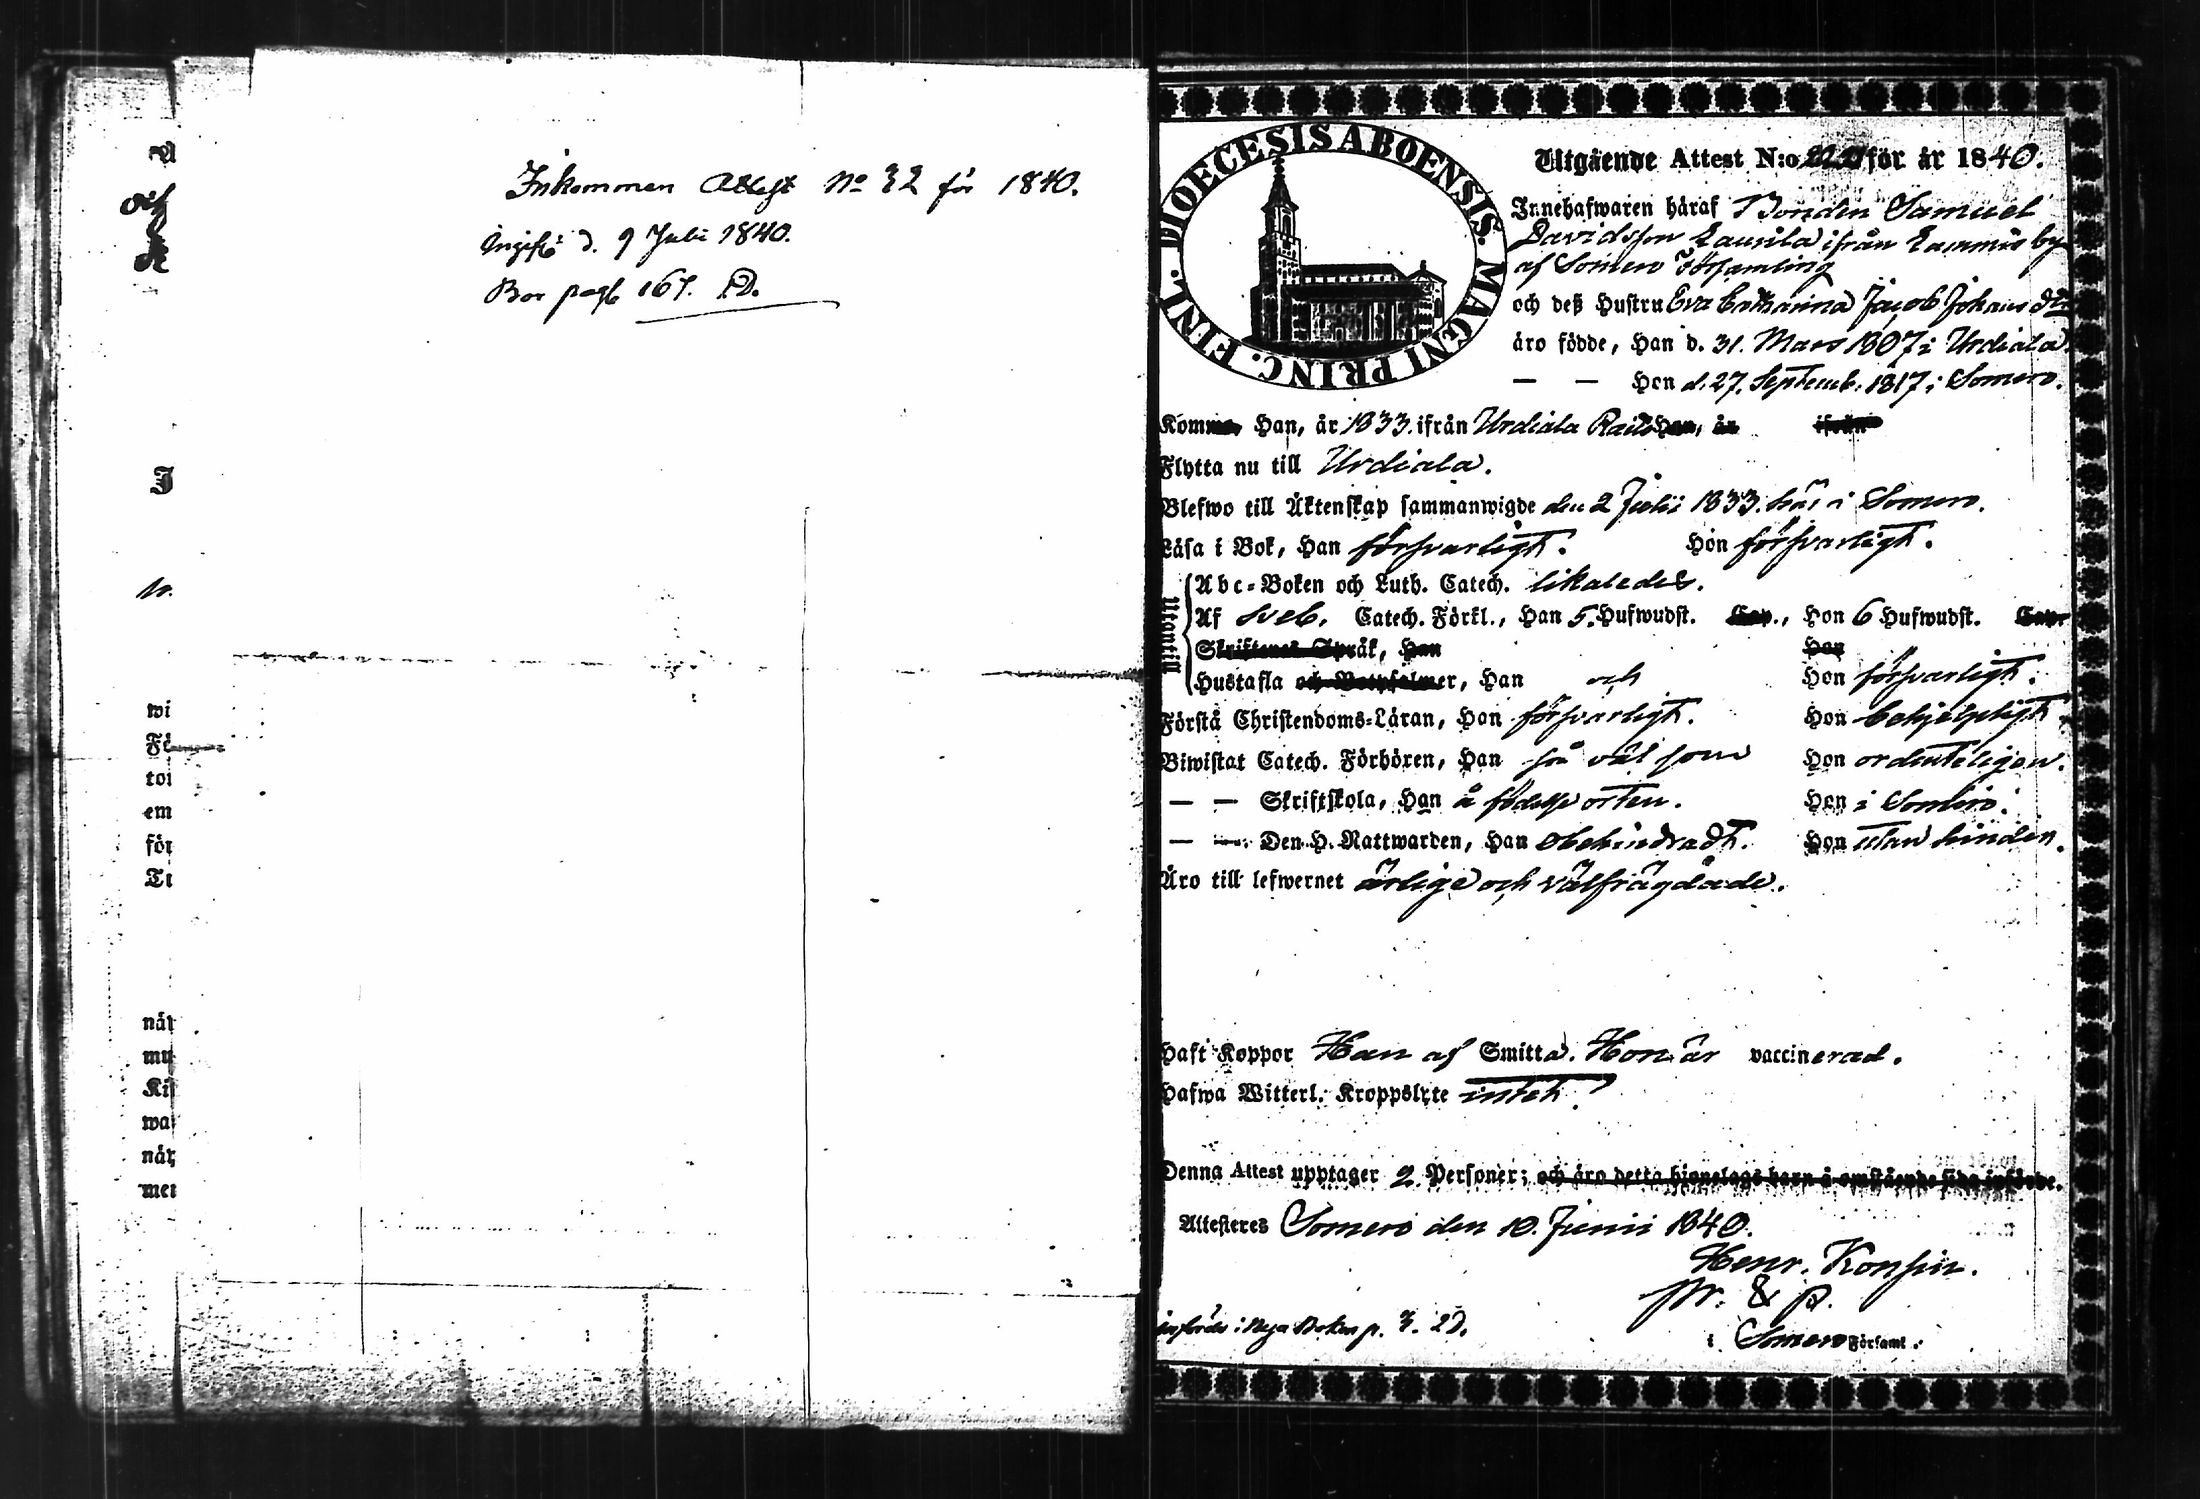 Inkommen Attest No 32 för 1840.
ingifv: d. 9 Julii 1840.
Bor pag. 167. P.D.
A
och
I
n.
wi
Fö
toi
em
för
Ti
når
my
Kis
wa
når
mei
DIOECESIS ABOENSIS. MAGNI PRINC. FINL.
Utgående Attest N:o för år 1840.
Innehafwaren häraf Bonden Samuel
Davidsson Laurila ifrån Lammis by
af Somero Församling
och deß Hustru Eva Catharina Jacob Johans dtr
äro födde, Han d. 31. Mars 1807 i Urdiala.
— — Hon d. 27. Septemb. 1817 i Somero.
Komme, Han, år 1833. ifrån Urdiala Hon, år ifrån
Flytta nu till Urdiala.
Blefwo till Äktenskap sammanwigde den 2 Julii 1833. här i Somero.
Läsa i Bok, Han försvarligt. Hon försvarligt.
Utantill
Abc-Boken och Luth. Catech. likaledes.
Af Sveb. Catech. Förkl., Han 5. Hufwudst. Cap., Hon 6 Hufwudst. Cap.
Skriftenes Språk, Han Hon
Hustafla och Botpsalmer, Han och Hon försvarligt.
Förstå Christendoms-Läran, Han försvarligt. Hon behjelpligt.
Biwistat Catech. Förhören, Han så väl som Hon ordenteligen.
— — Skriftskola, Han å födelse orten. Hon i Somero.
— — Den H. Nattwarden, Han obehindradt. Hon utan hinder.
Äro till lefwernet ärlige och välfrägdade.
Haft Koppor Han af Smitta. Hon är vaccinerad.
Hafwa Witterl. Kroppslyte intet.
Denna Attest upptager 2 Personer; och äro detta hjonelags barn å omstående sida införde.
Attesteres Somero den 10. Junii 1840.
Henr. Konsin.
pr. & p.
införde i Nya Boken p. 3. 2D.
i Somero Församl.